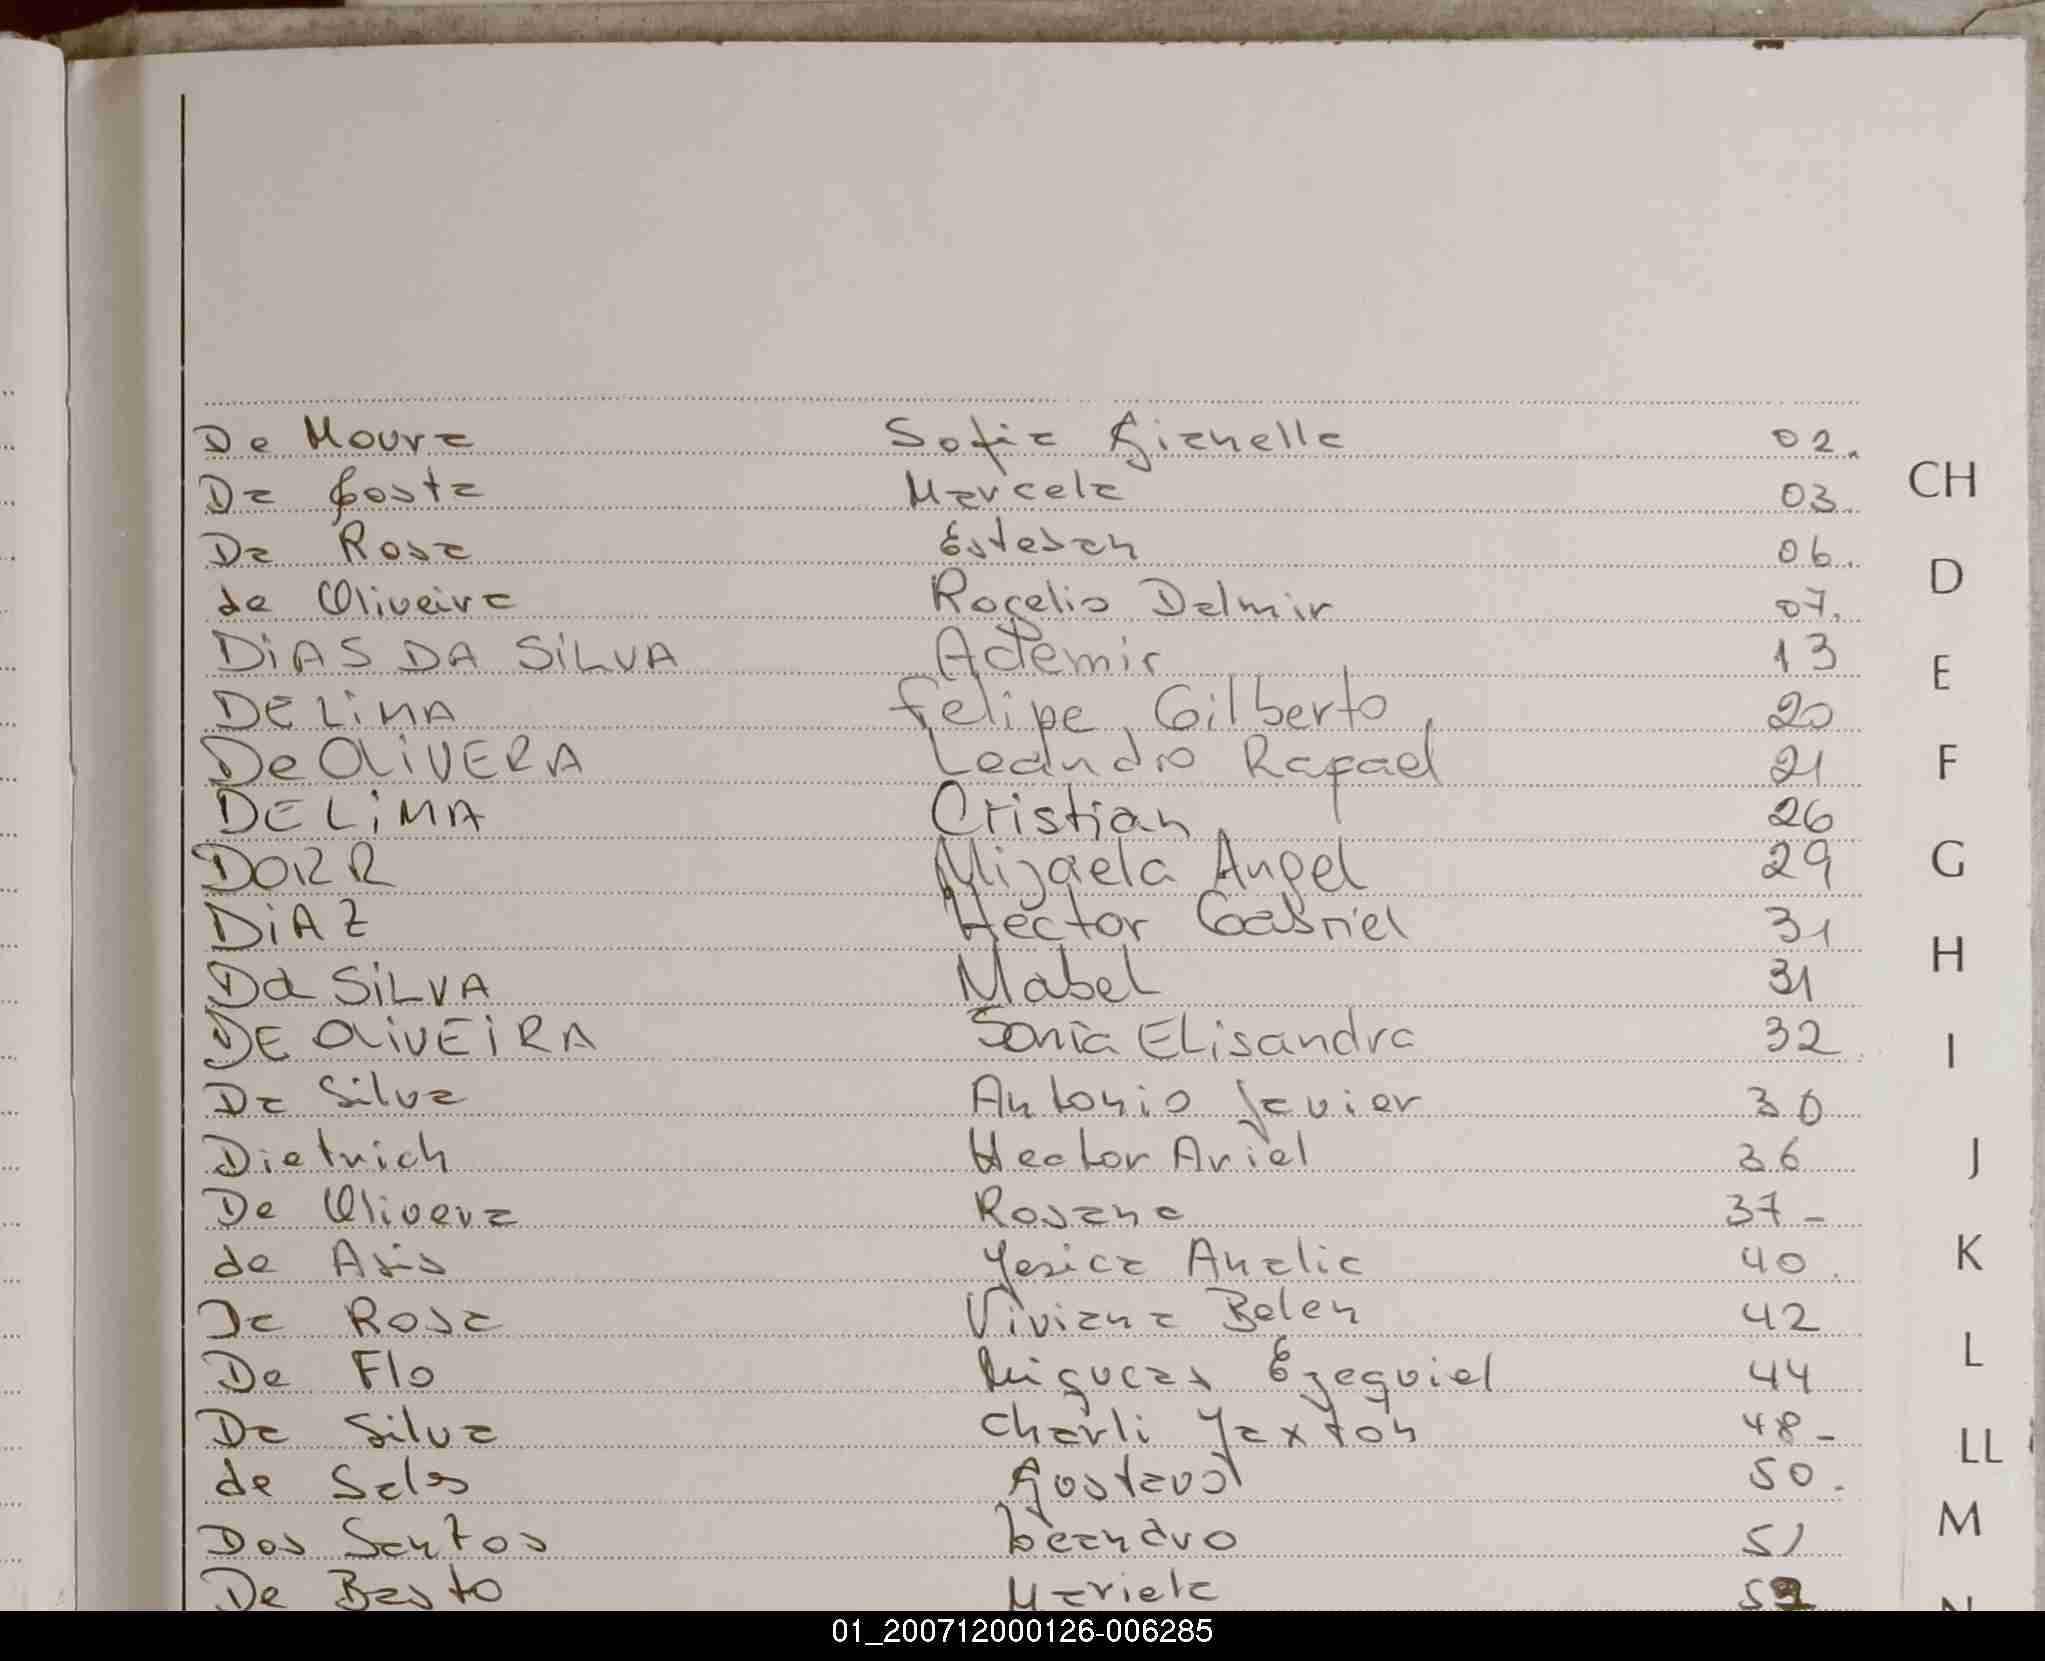 De Moura Sofia Gianella 02.
Da Costa Marcela 03.
Da Rosa Esteban 06.
de Oliveira Rogelio Dalmir 07.
DiAS DA SiLVA Ademir 13
DE LiMA Felipe Gilberto 20
De OLiVERA Leandro Rafael 21
DE LiMA Cristian 26
DORR Micaela Angel 29
DiAZ Hector Gabriel 31
Da SiLVA Mabel 31
DE OLiVEiRA Sonia Elisandra 32
Da Silva Antonio Javier 30
Dietrich Hector Ariel 36
De Olivera Rosana 37-
de Asis Yesica Analia 40.
Da Rosa Viviana Belen 42
De Flo Ezequiel 44
Da Silva Charli Yaxton 48-
de Salos Gustavo 50.
Dos Santos Leandro 51
De Basto Mariela
CH
D
E
F
G
H
I
J
K
L
LL
M
N
01_200712000126-006285